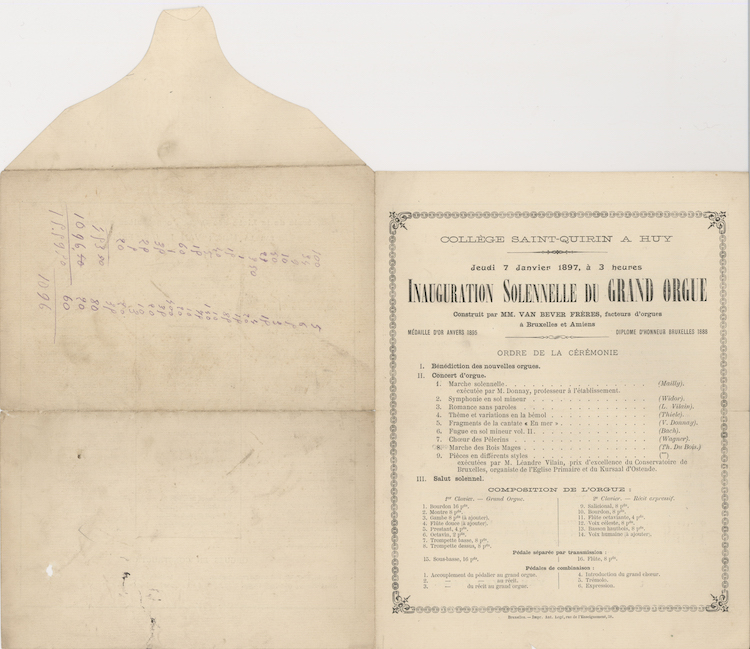 COLLÈGE SAINT-QUIRIN A HUY
Jeudi 7 Janvier 1897, à 3 heures
INAUGURATION SOLENNELLE DU GRAND ORGUE
Construit par MM. VAN BEVER FRÈRES, facteurs d'orgues
à Bruxelles et Amiens
MÉDAILLE D'OR ANVERS 1885 DIPLOME D'HONNEUR BRUXELLES 1888
ORDRE DE LA CÉRÉMONIE
I. Bénédiction des nouvelles orgues.
II. Concert d'orgue.
1. Marche solennelle. (Mailly).
exécutée par M. Donnay, professeur à l'établissement.
2. Symphonie en sol mineur (Widor).
3. Romance sans paroles (L. Vilain).
4. Thème et variations en la bémol (Thiele).
5. Fragments de la cantate « En mer » (V. Donnay).
6. Fugue en sol mineur vol. II. (Bach).
7. Chœur des Pélerins (Wagner).
8. Marche des Rois Mages (Th. Du Bois.)
9. Pièces en différents styles
exécutées par M. Léandre Vilain, prix d'excellence du Conservatoire de
Bruxelles, organiste de l'Eglise Primaire et du Kursaal d'Ostende.
III. Salut solennel.
COMPOSITION DE L'ORGUE :
1er Clavier. — Grand Orgue.
1. Bourdon 16 pds.
2. Montre 8 pds.
3. Gambe 8 pds (à ajouter).
4. Flûte douce (à ajouter).
5. Prestant, 4 pds.
6. Octavin, 2 pds.
7. Trompette basse, 8 pds.
8. Trompette dessus, 8 pds.
2e Clavier. — Récit expressif.
9. Salicional, 8 pds.
10. Bourdon, 8 pds.
11. Flûte octaviante, 4 pds.
12. Voix céleste, 8 pds.
13. Basson hautbois, 8 pds.
14. Voix humaine (à ajouter).
Pédale séparée par transmission :
15. Sous-basse, 16 pds. 16. Flûte, 8 pds.
Pédales de combinaison :
1. Accouplement du pédalier au grand orgue.
2. — — au récit.
3. — du récit au grand orgue.
4. Introduction du grand chœur.
5. Trémolo.
6. Expression.